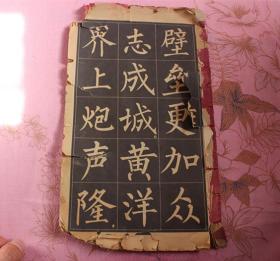 壁垒更加众
志成城黄洋
界上炮声隆